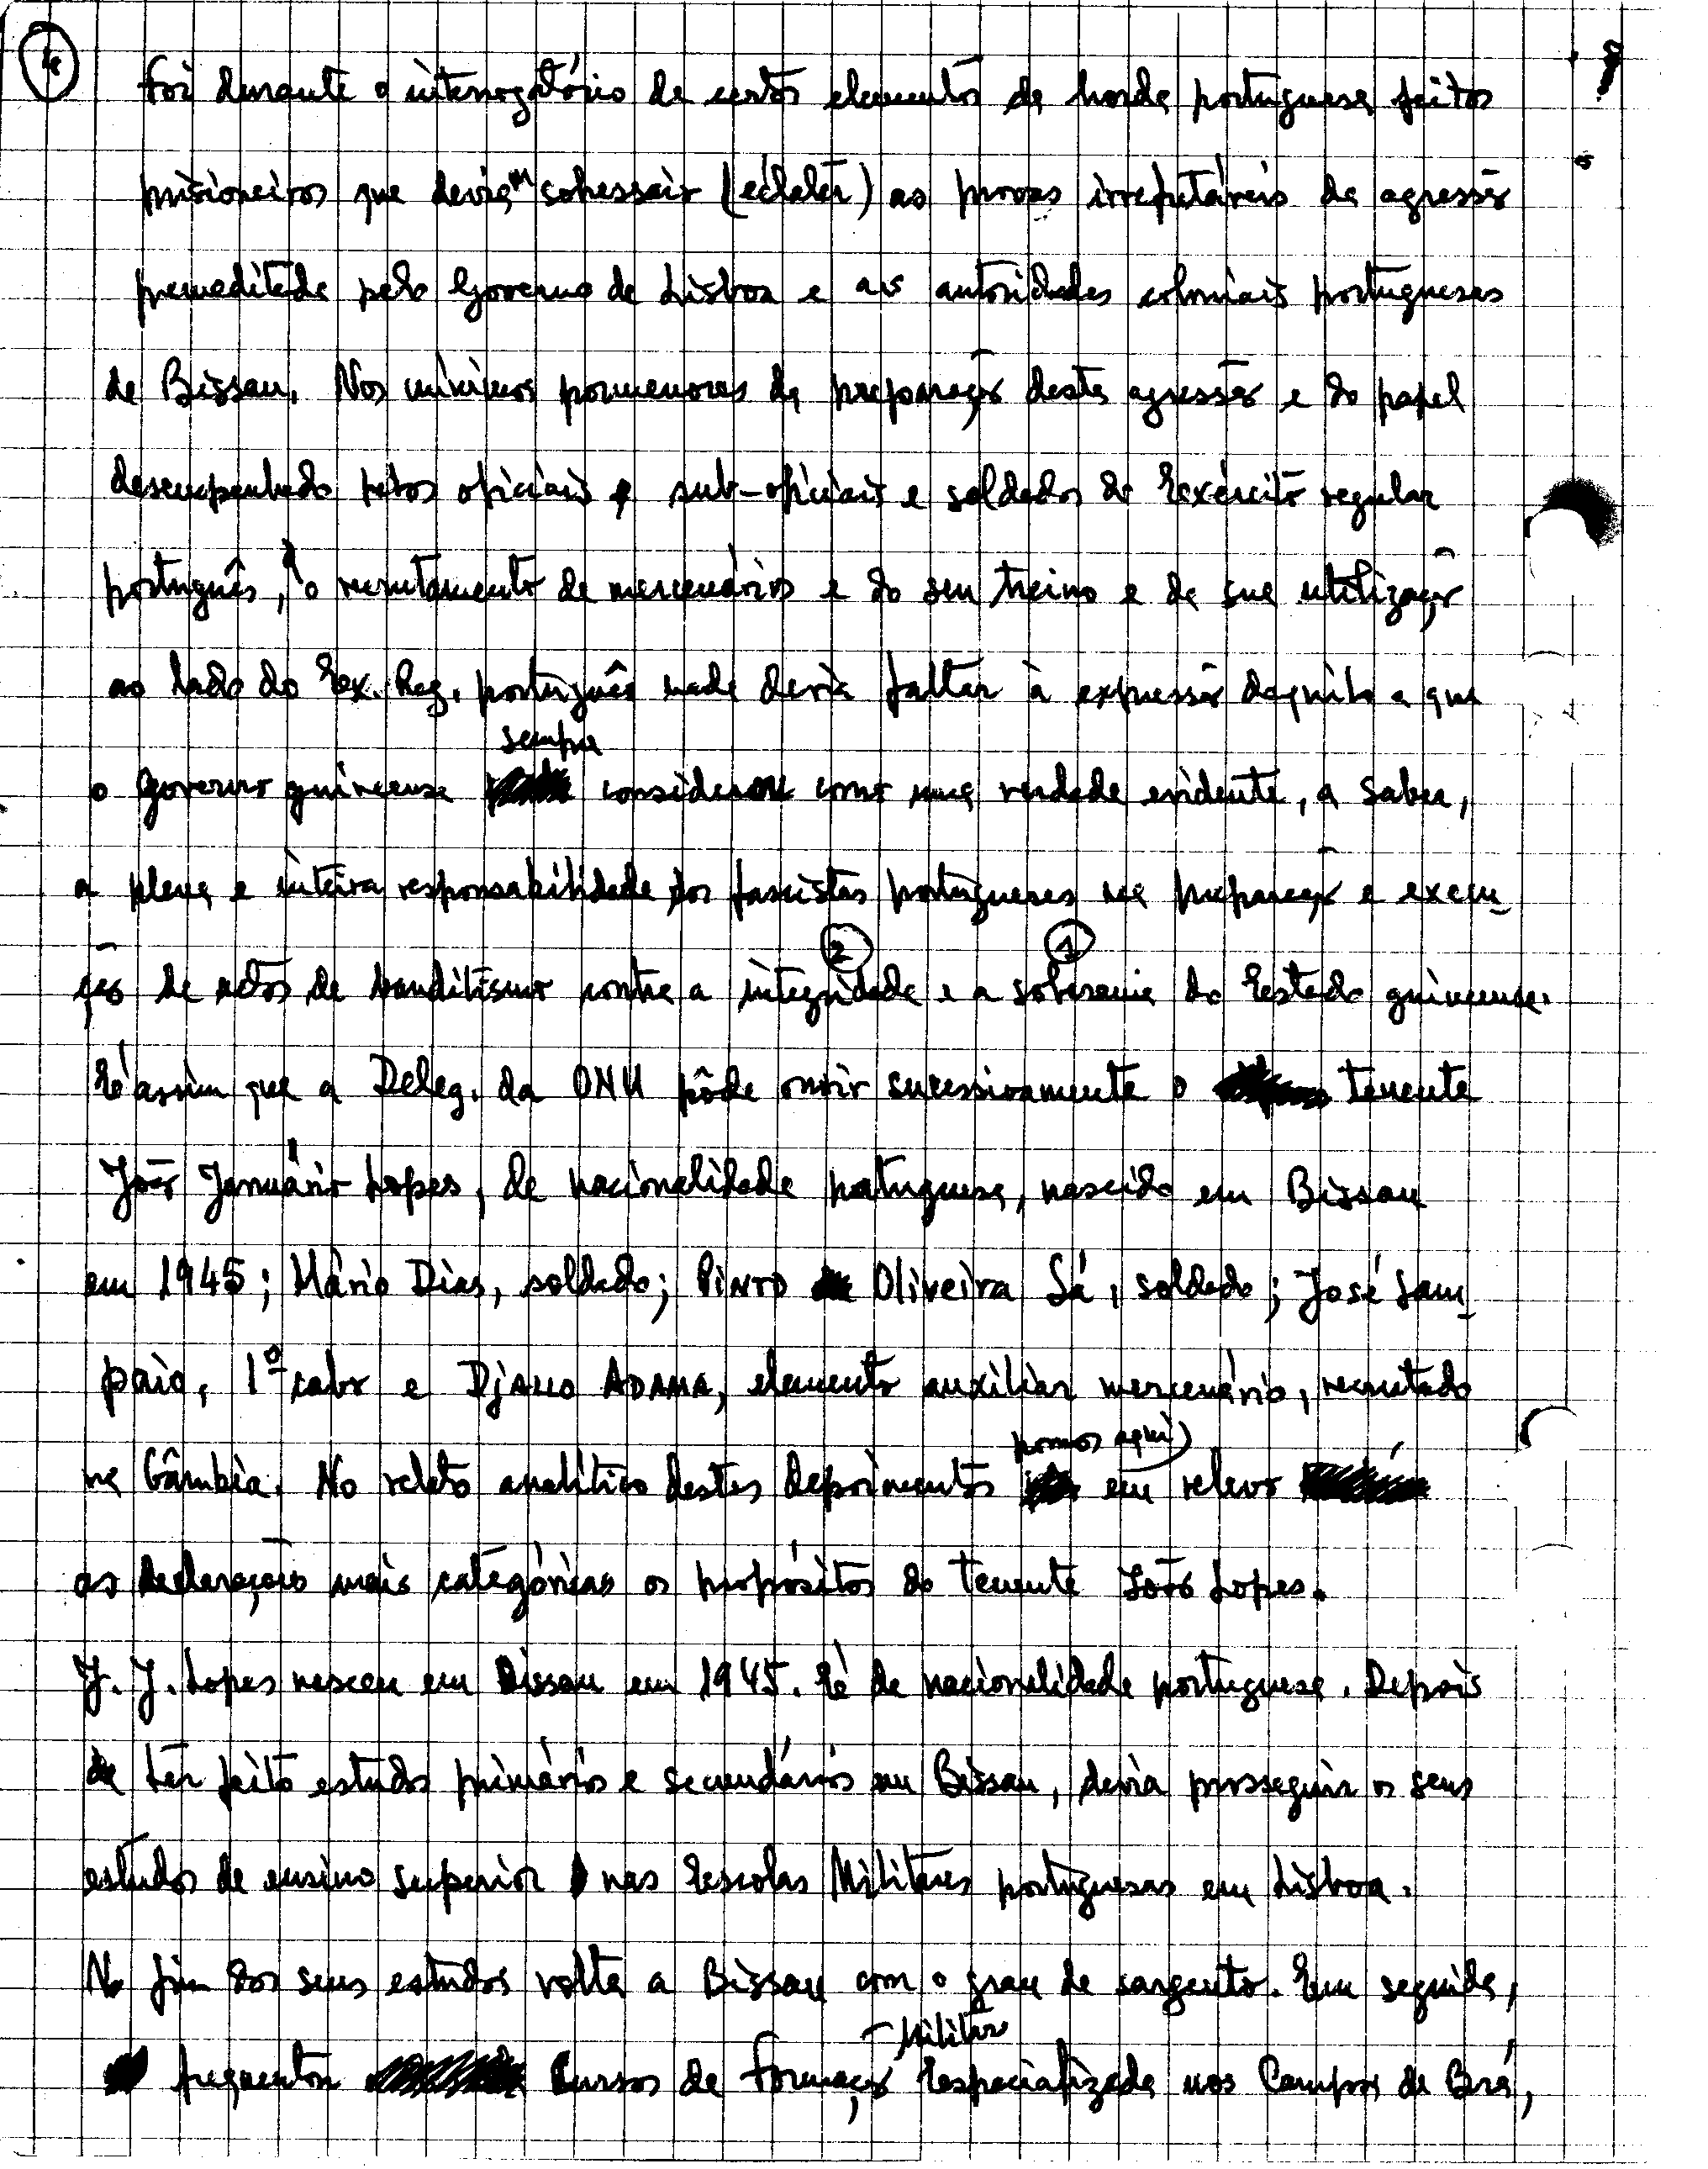 4
Foi durante o interrogatório de certos elementos da horda portuguesa feitos
prisioneiros que deviam sobressair (éclater) as provas irrefutáveis da agressão
premeditada pelo Governo de Lisboa e as autoridades coloniais portuguesas
de Bissau. Nos mínimos pormenores da preparação desta agressão e do papel
desempenhado pelos oficiais e sub-oficiais e soldados do Exército regular
português, do recrutamento de mercenários e do seu treino e da sua utilização
ao lado do Ex. Reg. português nada devia faltar à expressão daquilo a que
sempre
o governo guineense considerou como uma verdade evidente, a saber,
a plena e inteira responsabilidade dos fascistas portugueses na preparação e execu-
2 1
ção de actos de banditismo contra a integridade e a soberania do Estado guineense.
É assim que a Deleg. da ONU pôde ouvir sucessivamente o tenente
João Januário Lopes, de nacionalidade portuguesa, nascido em Bissau
em 1945; Mário Dias, soldado; PINTO Oliveira Sá, soldado; José Sam-
paio, 1º cabo e DJALLO ADAMA, elemento auxiliar mercenário, recrutado
pomos aqui)
na Gâmbia. No relato analítico destes depoimentos em relevo
as declarações mais categóricas os propósitos do tenente João Lopes.
J. J. Lopes nasceu em Bissau em 1945. É de nacionalidade portuguesa. Depois
de ter feito estudos primários e secundários em Bissau, devia prosseguir os seus
estudos de ensino superior nas Escolas Militares portuguesas em Lisboa.
No fim dos seus estudos volta a Bissau com o grau de sargento. Em seguida,
Militar
frequentou Cursos de Formação Especializada nos Campos de Brá,